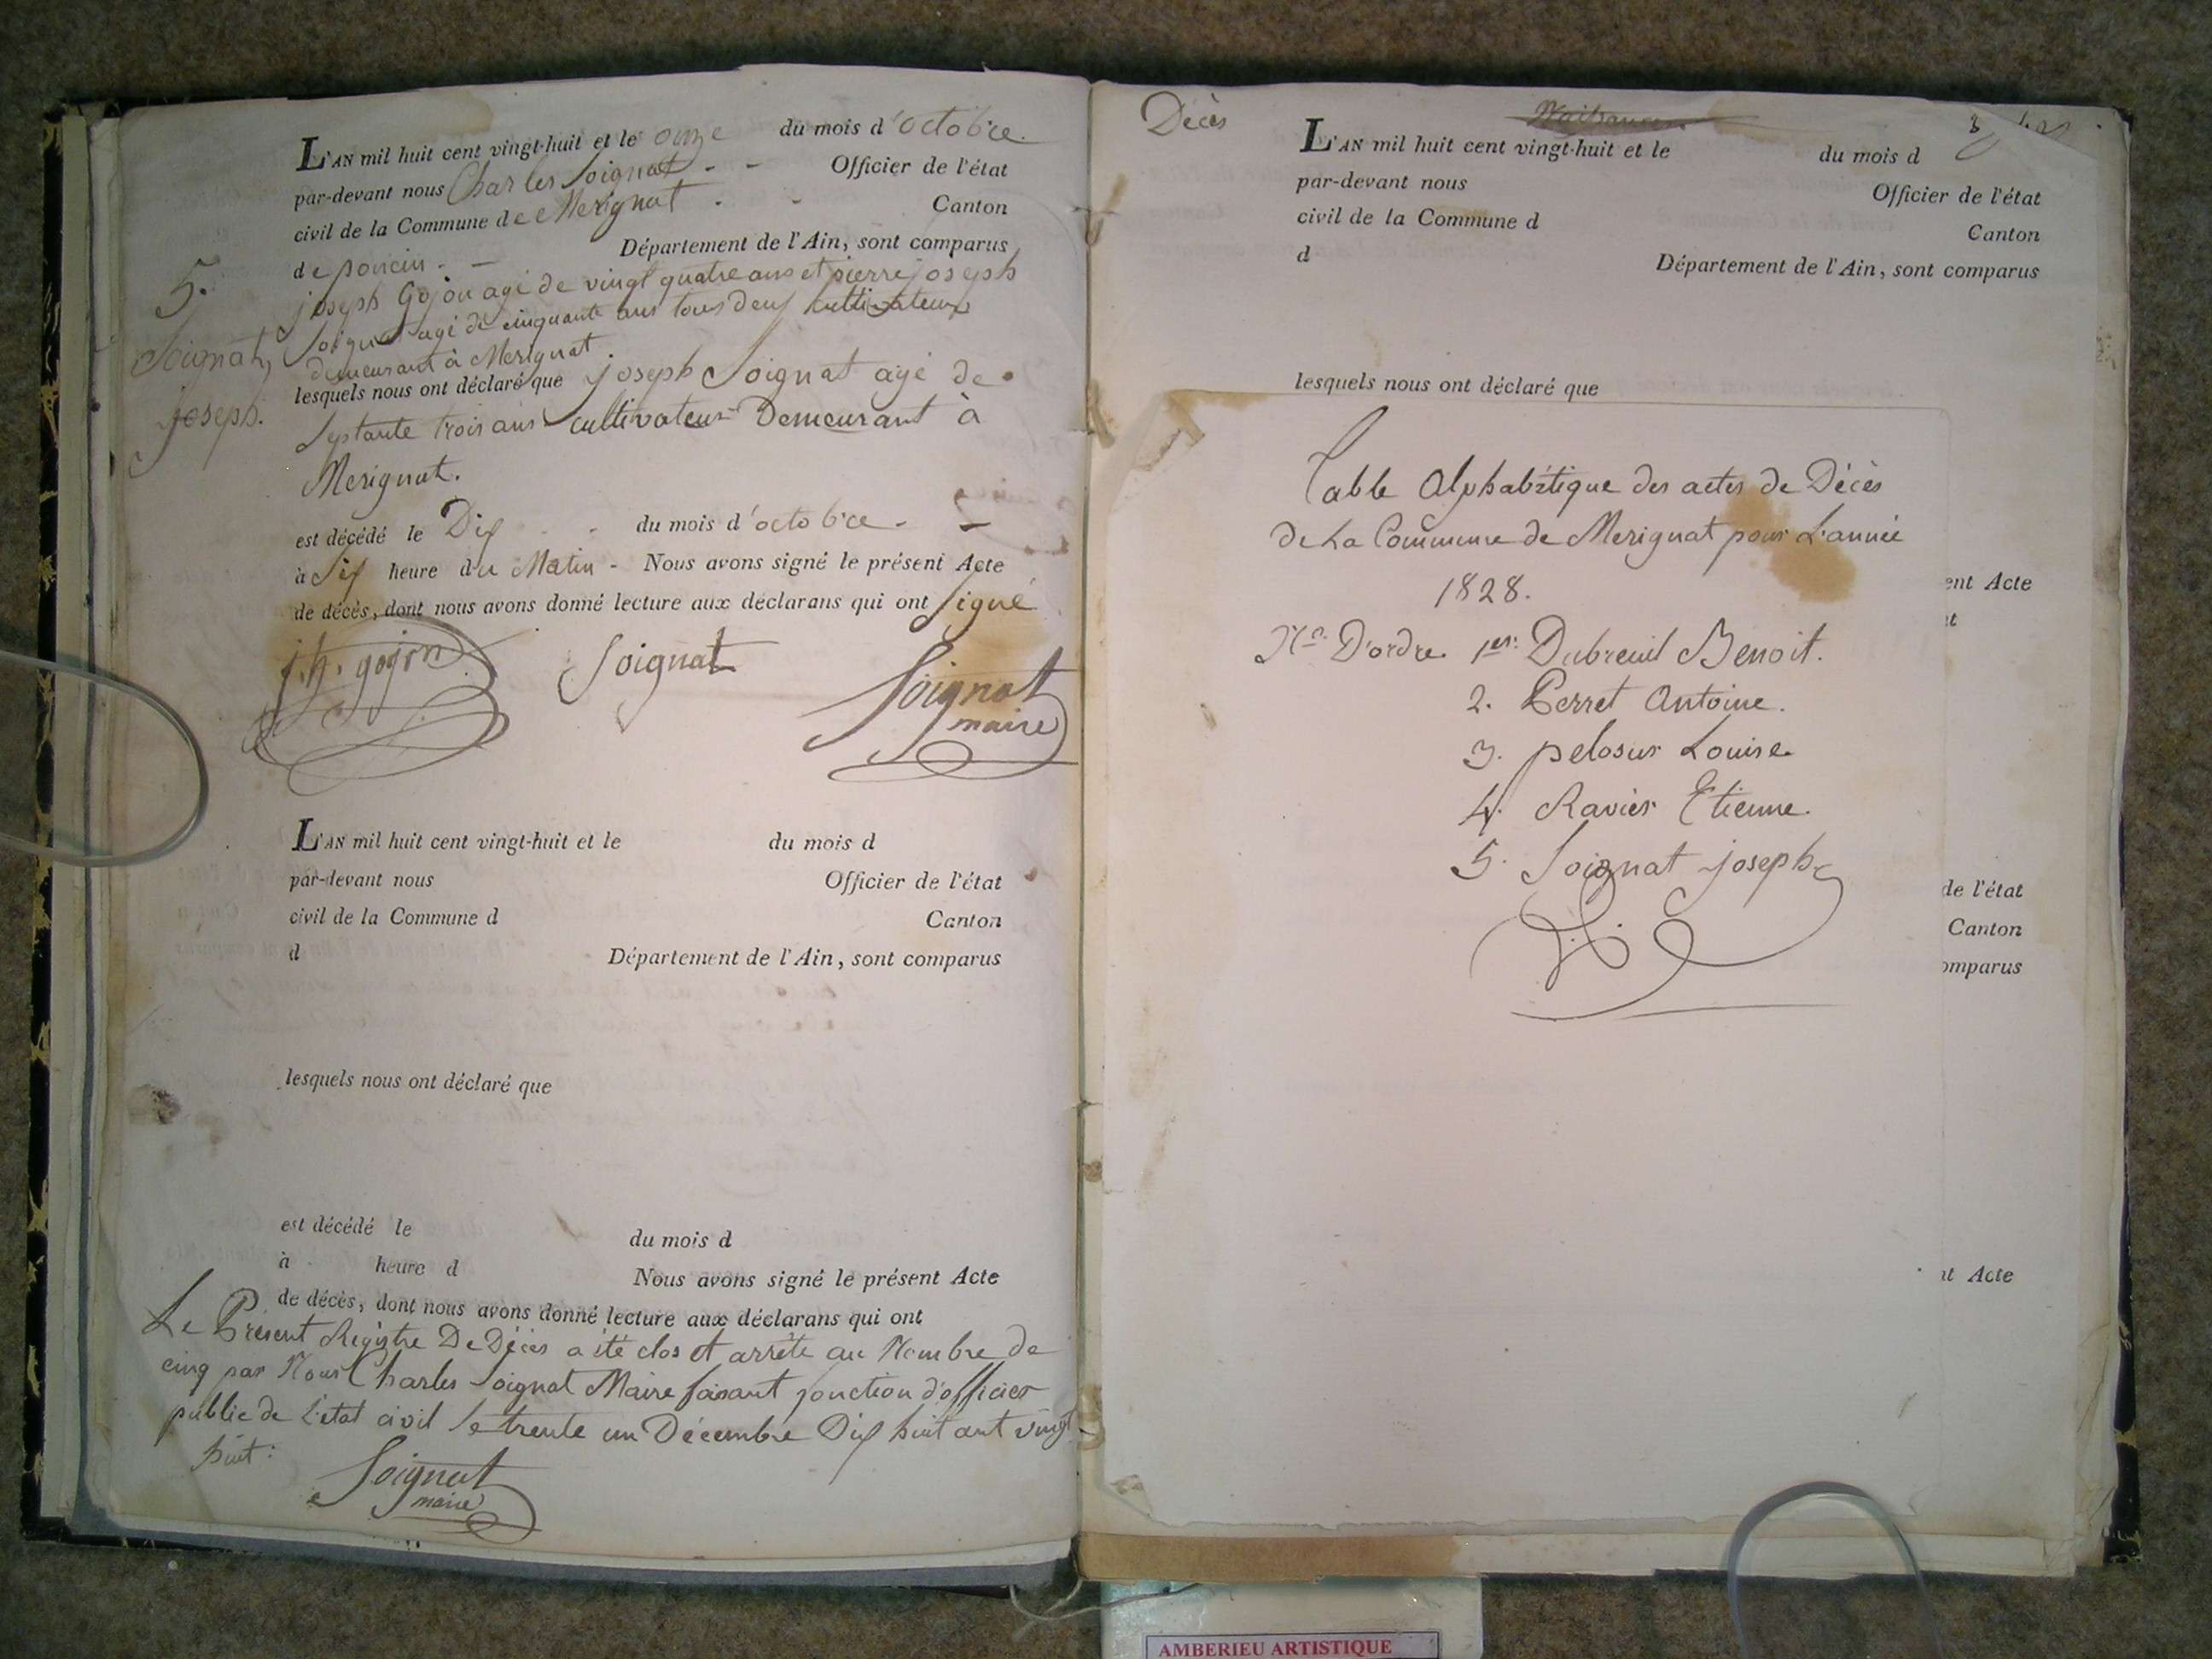 L'AN mil huit cent vingt-huit et le onze du mois d'octobre
par-devant nous Charles Soignat Officier de l'état
civil de la Commune de Merignat Canton
de poncin Département de l'Ain, sont comparus
joseph Gojon agé de vingt quatre ans et pierre joseph
Soignat agé de cinquante ans tous deux cultivateurs
demeurant à Merignat
5.
Soignat,
Joseph.
lesquels nous ont déclaré que joseph Soignat agé de
septante trois ans cultivateur Demeurant à
Merignat.
est décédé le Dix du mois d'octobre
à Six heure du Matin - Nous avons signé le présent Acte
de décès, dont nous avons donné lecture aux déclarans qui ont signé
j.h. gojon Soignat Soignat
maire
L'AN mil huit cent vingt-huit et le du mois d
par-devant nous Officier de l'état
civil de la Commune d Canton
d Département de l'Ain, sont comparus
lesquels nous ont déclaré que
est décédé le du mois d
à heure d Nous avons signé le présent Acte
de décès, dont nous avons donné lecture aux déclarans qui ont
Le Présent Registre De Décès a été clos et arrêté au Nombre de
cinq par Nous Charles Soignat Maire faisant fonction d'officier
public de l'état civil le trente un Décembre Dix huit ant vingt
huit:
Soignat
maire
Décès
Naissances
L'AN mil huit cent vingt-huit et le du mois d
par-devant nous Officier de l'état
civil de la Commune d Canton
d Département de l'Ain, sont comparus
lesquels nous ont déclaré que
Table Alphabétique des actes de Décès
de La Commune de Merignat pour L'année
1828.
ent Acte
Nos D'ordre 1er Dubreuil Benoit.
2. Perret Antoine.
3. pelosus Louise
4. Ravier Etienne.
5. Soignat joseph
de l'état
Canton
omparus
nt Acte
AMBERIEU ARTISTIQUE